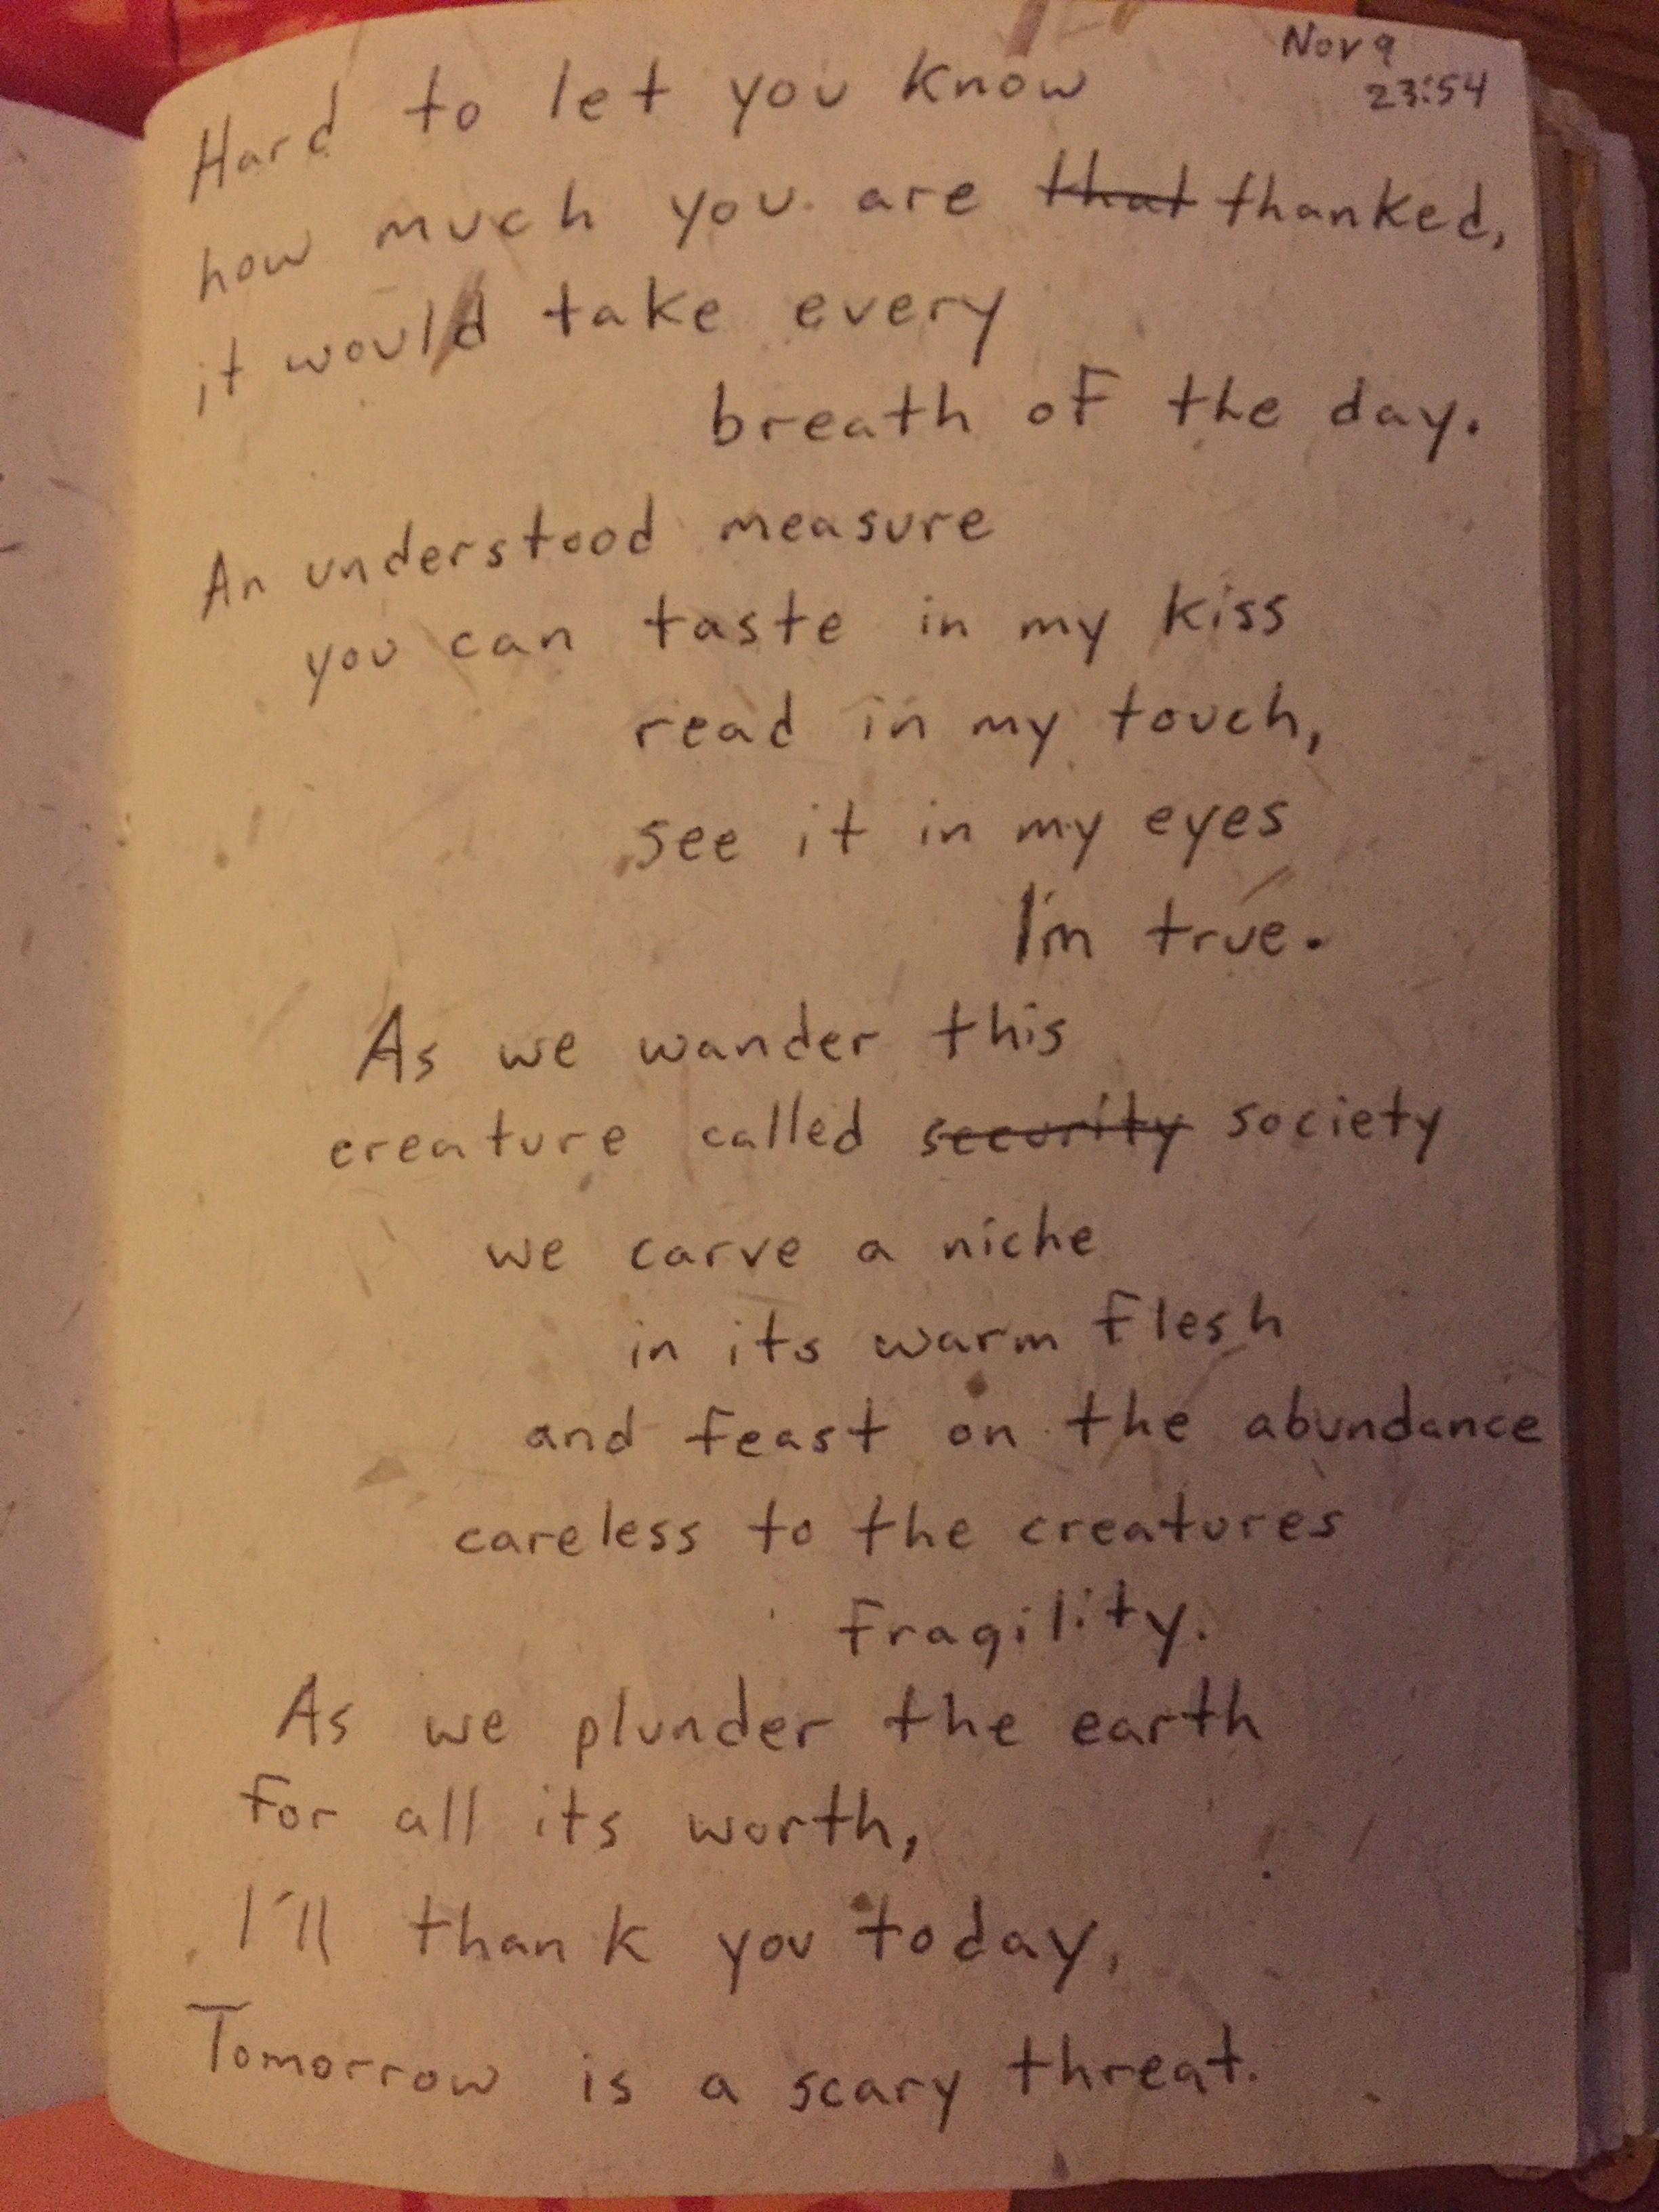 Nov 9
23:54
Hard to let you know
how much you are ~~that~~ thanked,
it would take every
breath of the day.
An understood measure
you can taste in my kiss
read in my touch,
see it in my eyes
I'm true.
As we wander this
creature called ~~security~~ society
we carve a niche
in its warm flesh
and feast on the abundance
careless to the creatures
fragility.
As we plunder the earth
for all its worth,
I'll thank you today,
Tomorrow is a scary threat.